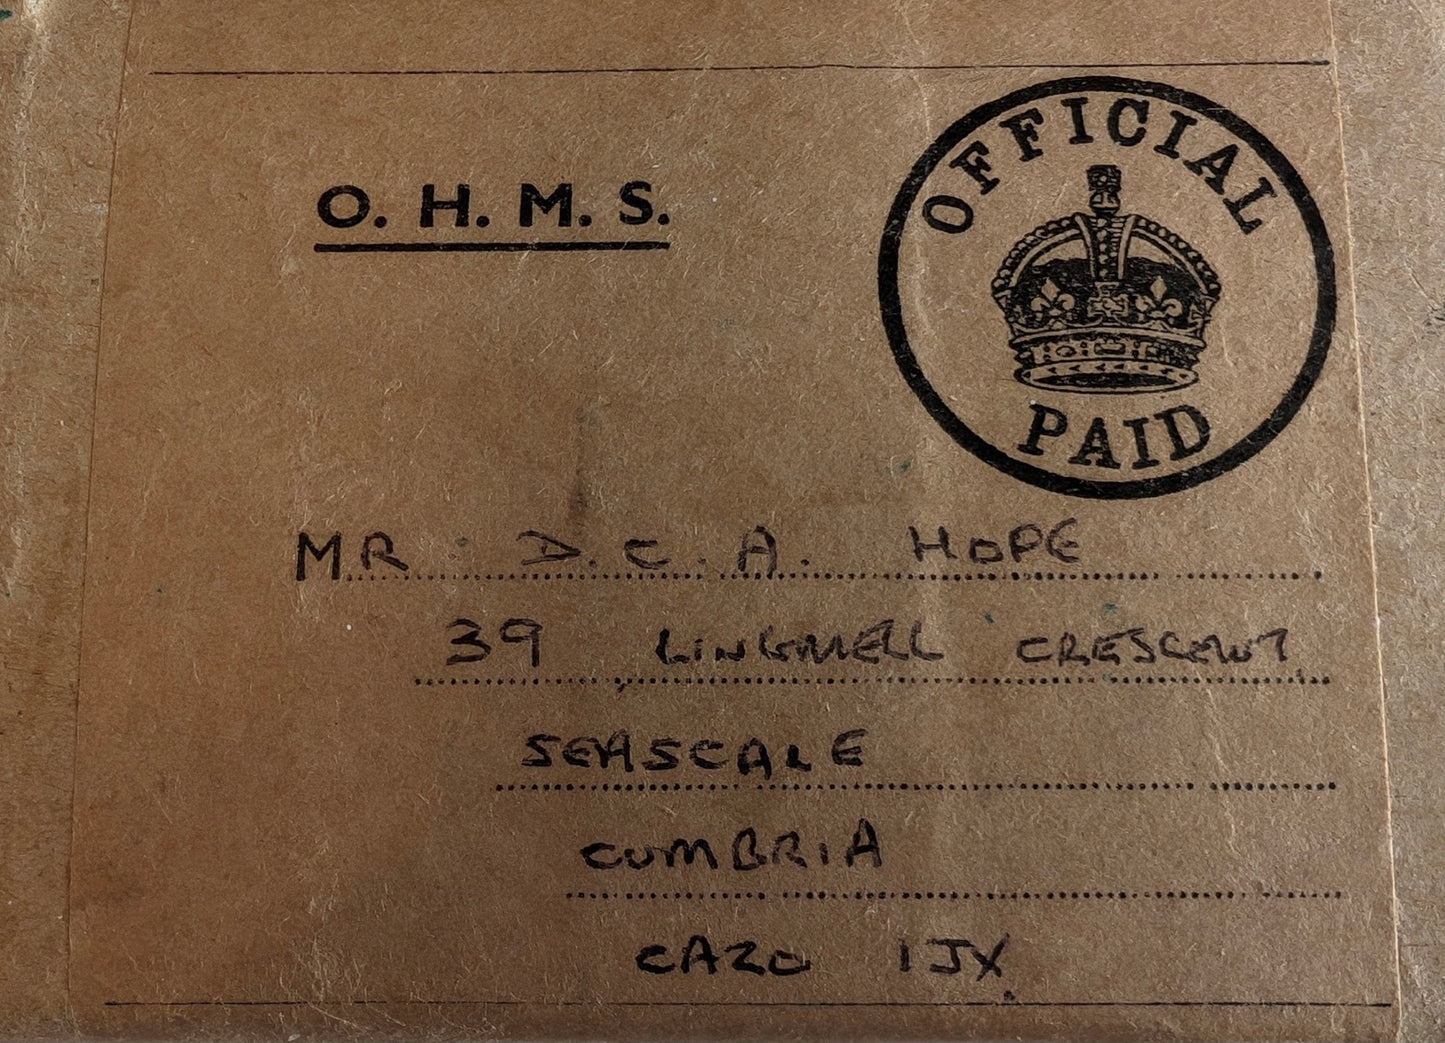 O. H. M. S.
OFFICIAL
PAID
MR D.C.A. HOPE
39 LINGMELL CRESCENT
SEASCALE
CUMBRIA
CA20 1JX